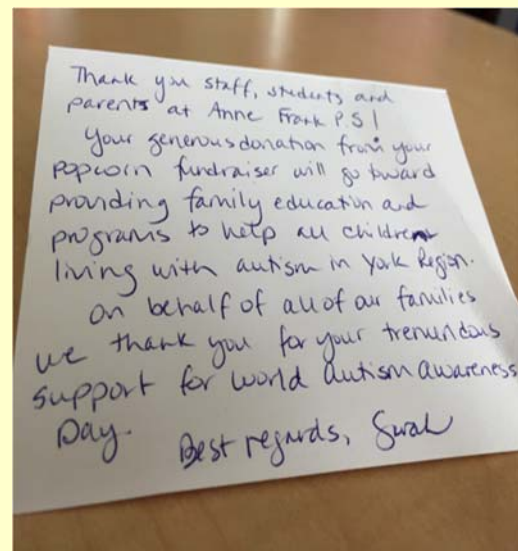 Thank you staff, students and
parents at Anne Frank P.S!
Your generous donation from your
popcorn fundraiser will go toward
providing family education and
programs to help all children
living with autism in York Region.
On behalf of all of our families
we thank you for your tremendous
support for world autism awareness
Day.
Best regards, Sarah